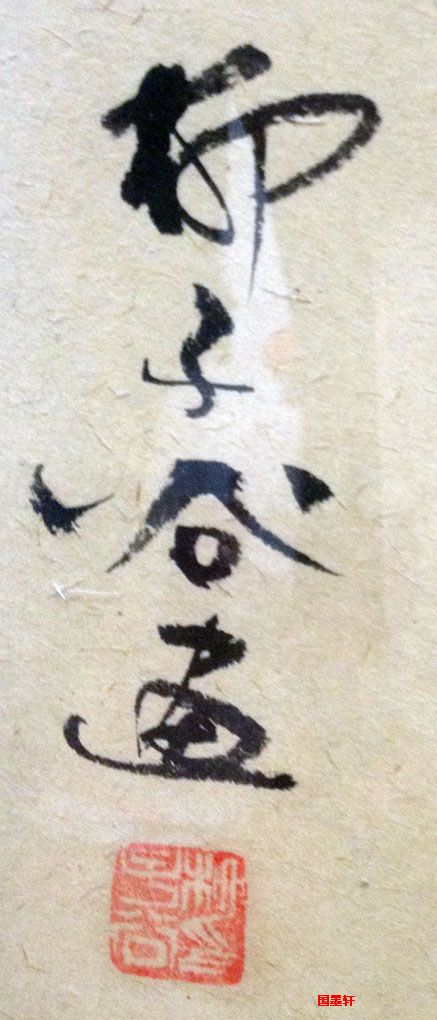 柳子谷画
国墨轩